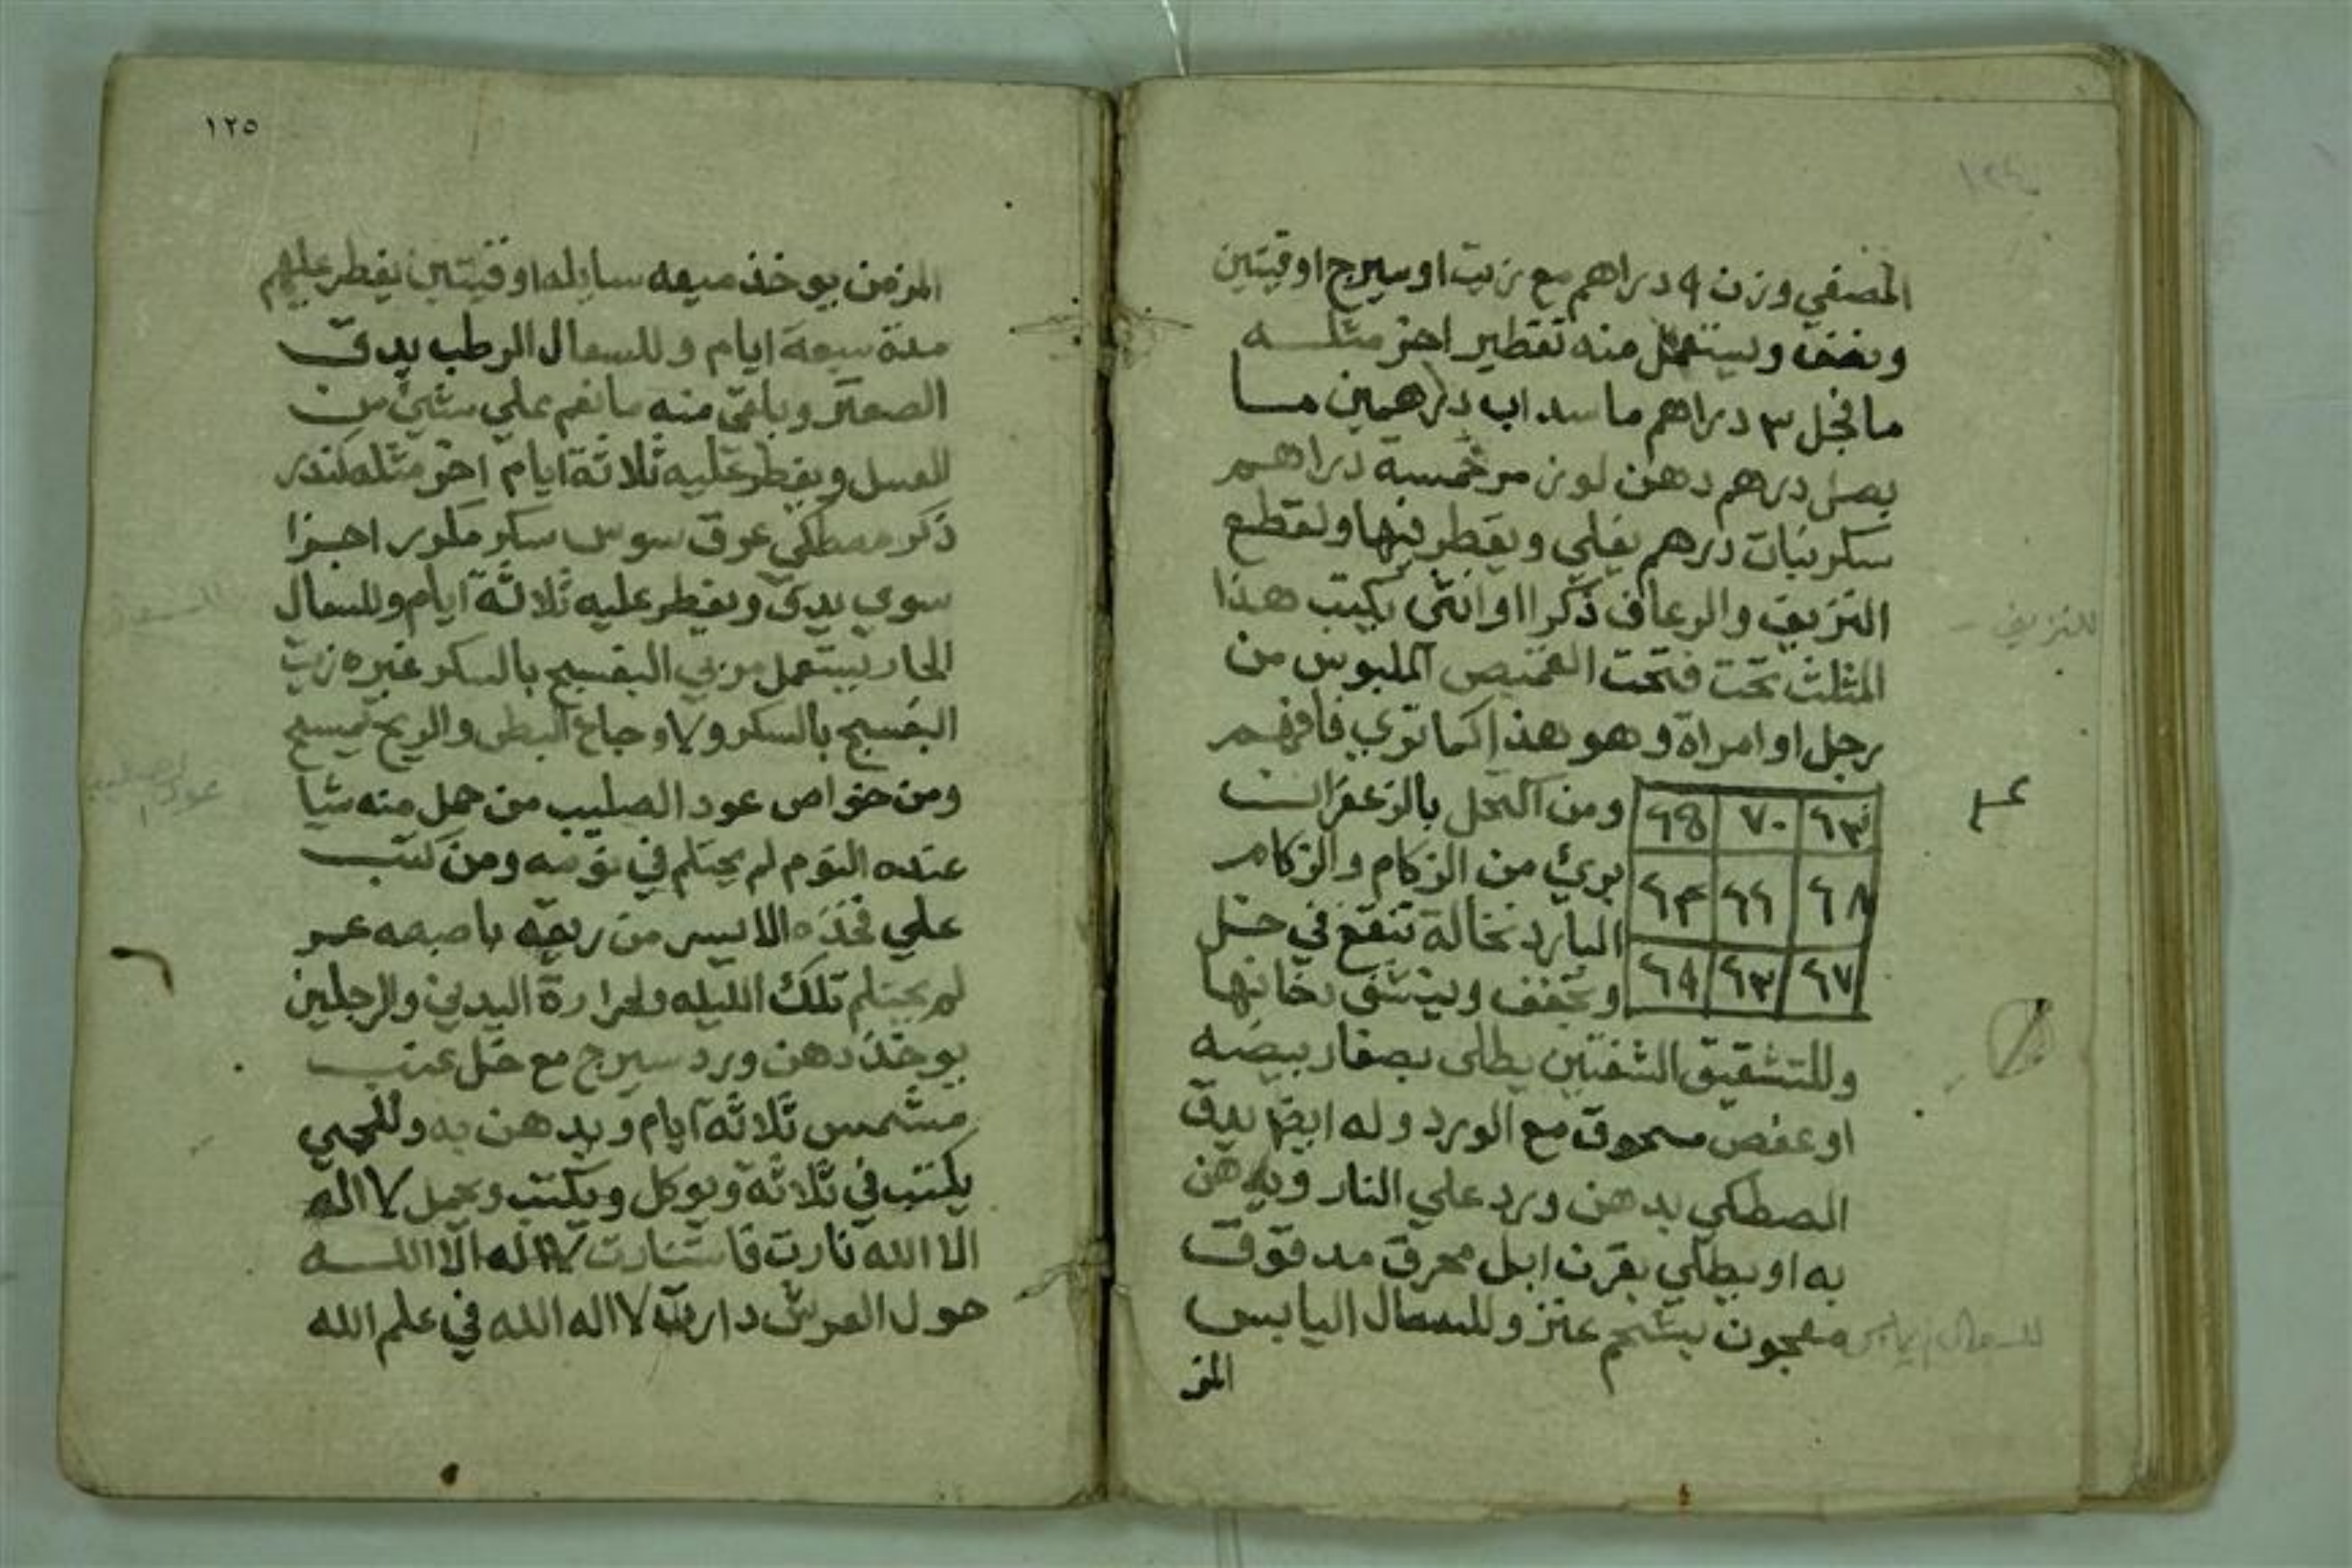 المصفي وزن ٩ دراهم مع زيت او سيرج اوقيتين
ونصف ويستعمل منه تقطير اخر مثله
ما فجل ٣ دراهم ما سداب درهمين ما
بصل درهم دهن لوز مر خمسة دراهم
سكر نبات درهم يغلي ويقطر فيها ولقطع
النزيف والرعاف ذكرا او انثى يكتب هذا
المثلث تحت فتحت القميص الملبوس من
رجل او امراة وهو هذا كما تري فافهم
ومن اكتحل بالزعفران
بري من الزكام والزكام
البارد نخالة تنقع في خل
وتجفف وينشق دخانها
٧٠
٦٦
٦٨
٦٧
٦٣
وللتشقيق الشفتين يطلى بصفار بيضه
او عفص مسحوق مع الورد وله ايضا يدق
المصطكي بدهن ورد علي النار ويدهن
به او يطلي بقرن ابل محرق مدقوق
معجون بشحم عنز وللسعال اليابس
للنزيف
للسعال اليابس
المز
١٢٥
المزمن يوخذ ميعه سايله اوقيتين يفطر عليهم
مدة سبعة ايام وللسعال الرطب يدق
الصعتر وباقى منه ناعم علي شئ من
العسل ويفطر عليه ثلاثة ايام اخر مثله كندر
ذكر مصطكي عرق سوس سكر مكرر اجزا
سوي يدق ويفطر عليه ثلاثة ايام وللسعال
الحار يستعمل مربي البنفسج بالسكر غيره زيت
البنفسج بالسكر ولاوجاع البطن والريح
ومن خواص عود الصليب من حمل منه شيا
عنده النوم لم يحتلم في نومه ومن كتب
علي فخذه الايسر من ريقه باصبعه عمر
لم يحتلم تلك الليله ولحرارة اليدين والرجلين
يوخذ دهن ورد سيرج مع خل عنب
مشمس ثلاثة ايام ويدهن به وللحمي
يكتب في ثلاثة ويوكل ويكتب ويحمل لا اله
الا الله نارت فاستنارت لا اله الا الله
حول العرش دارت لا اله الله في علم الله